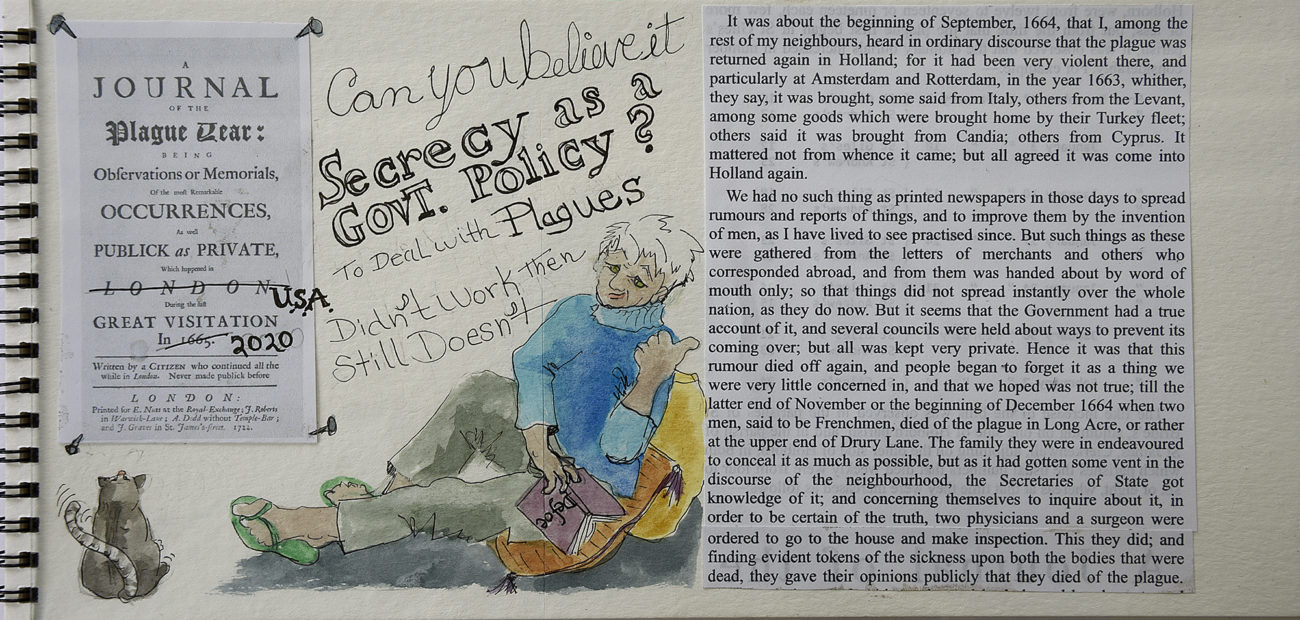 A
JOURNAL
OF THE
Plague Year:
BEING
Observations or Memorials,
Of the most Remarkable
OCCURRENCES,
As well
PUBLICK as PRIVATE,
Which happened in
LONDON USA
During the last
GREAT VISITATION
In 1665. 2020
Written by a CITIZEN who continued all the
while in London. Never made publick before
LONDON:
Printed for E. Nutt at the Royal-Exchange; J. Roberts
in Warwick-Lane; A. Dodd without Temple-Bar;
and J. Graves in St. James's-street. 1722.
Can you believe it
Secrecy as a
Govt. Policy?
To Deal with Plagues
Didn't Work Then
Still Doesn't
Defoe
It was about the beginning of September, 1664, that I, among the
rest of my neighbours, heard in ordinary discourse that the plague was
returned again in Holland; for it had been very violent there, and
particularly at Amsterdam and Rotterdam, in the year 1663, whither,
they say, it was brought, some said from Italy, others from the Levant,
among some goods which were brought home by their Turkey fleet;
others said it was brought from Candia; others from Cyprus. It
mattered not from whence it came; but all agreed it was come into
Holland again.
We had no such thing as printed newspapers in those days to spread
rumours and reports of things, and to improve them by the invention
of men, as I have lived to see practised since. But such things as these
were gathered from the letters of merchants and others who
corresponded abroad, and from them was handed about by word of
mouth only; so that things did not spread instantly over the whole
nation, as they do now. But it seems that the Government had a true
account of it, and several councils were held about ways to prevent its
coming over; but all was kept very private. Hence it was that this
rumour died off again, and people began to forget it as a thing we
were very little concerned in, and that we hoped was not true; till the
latter end of November or the beginning of December 1664 when two
men, said to be Frenchmen, died of the plague in Long Acre, or rather
at the upper end of Drury Lane. The family they were in endeavoured
to conceal it as much as possible, but as it had gotten some vent in the
discourse of the neighbourhood, the Secretaries of State got
knowledge of it; and concerning themselves to inquire about it, in
order to be certain of the truth, two physicians and a surgeon were
ordered to go to the house and make inspection. This they did; and
finding evident tokens of the sickness upon both the bodies that were
dead, they gave their opinions publicly that they died of the plague.